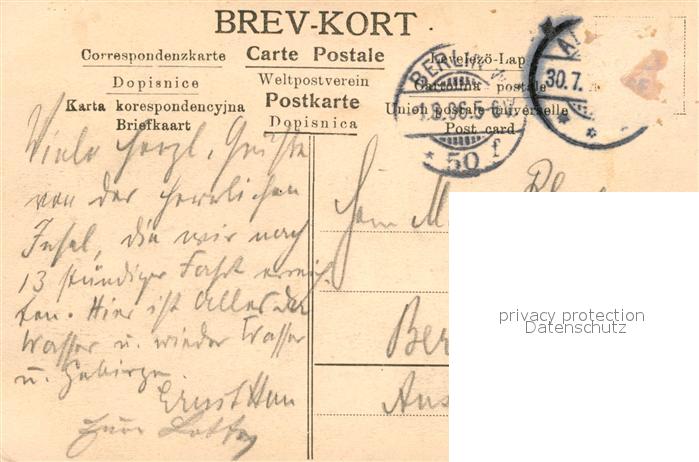 BREV-KORT
Correspondenzkarte Carte Postale Levelező-Lap
Dopisnice Weltpostverein Cartolina postale
Karta korespondencyjna Postkarte Union postale universelle
Briefkaart Dopisnica Post card
BERLIN W
1.8.06.5-6N
* 50 f
30.7.
Viele herzl. Grüße
von der herrlichen
Insel, die wir nach
13 stündiger Fahrt erreich-
ten. Hier ist Alles da
Wasser u. wieder Wasser
u. Gebirge.
Ernst
Herrn
Ber
Ans
privacy protection
Datenschutz